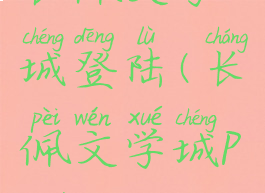 chéng dēng lù cháng
城登陆(长
pèi wén xué chéng
佩文学城P